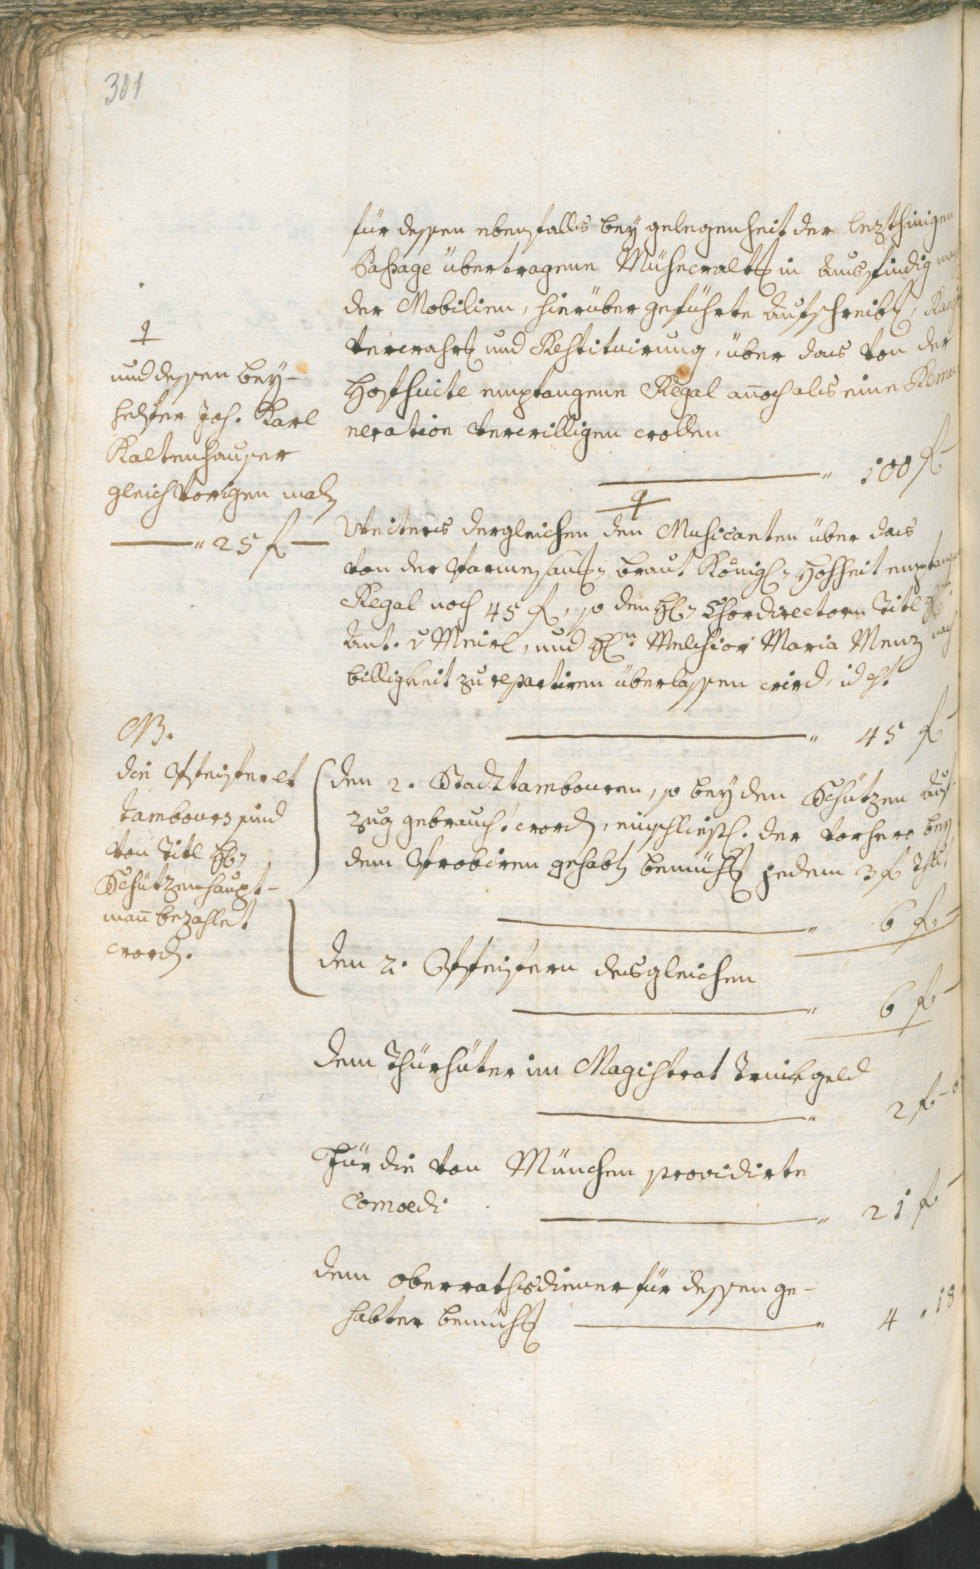 301
für dessen ebenfalls bey gelegenheit der letzthinigen
Passage übertragene Mühewaltg in Ausfindig
der Mobilien, hierüber geführte Aufschreibg,
verwahrg und Restituirung, über das von der
Hofsuite empfangene Regal annoch als eine Remu
neration verwilligen wollen
100 f
und dessen bey-
helfer Joh. Karl
Kaltenhauser
gleich vorigen
25 f
Weiters dergleichen den Musicanten über das
von der Parmesanischen Braut Königl. Hochheit
Regal noch 45 f, so den H. Chordirectorn Titl H.
Ant. v Meirl, und H. Melchior Maria Menz nach
billigkeit zu repartiren überlassen wird, id est
45 f
NB.
die Pfeifer et
tambours sind
von Titl H.
Schützenhaupt-
mann bezahlet
word.
den 2. Stadttambouren, so bey den Schützen auf
zug gebraucht word, einschliessl. der vorhero bey
dem Probiren gehabtn bemühg jedem 3 f
6 f
den 2. Pfeifern desgleichen
6 f
dem Thürhüter im Magistrat Trinkgeld
2 f
Für die von München providirte
Comoedi
21 f
dem Oberrathsdiener für dessen ge-
habter bemühg
4 " 18